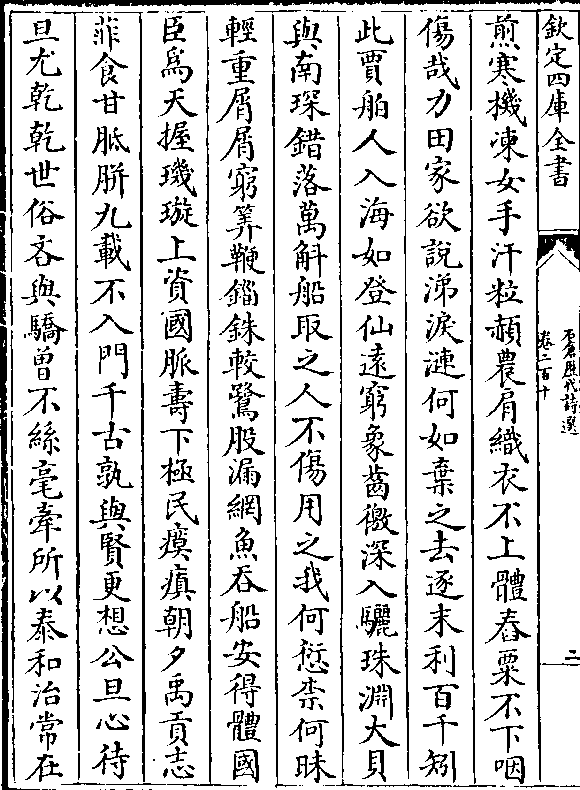 欽定四庫全書
石倉歷代詩選
卷二百十
二
煎寒機凍女手汗粒頳農肩織衣不上體舂粟不下咽
傷哉力田家欲說涕淚漣何如棄之去逐末利百千矧
此賈舶人入海如登仙遠窮象齒徼深入驪珠淵大貝
與南琛錯落萬斛船取之人不傷用之我何愆柰何昧
輕重屑屑窮筭鞭錙銖較鷺股漏網魚吞船安得體國
臣爲天握璣璇上資國脈壽下極民瘼瘨朝夕禹貢志
菲食甘胝胼九載不入門千古孰與賢更想公旦心待
旦尤乾乾世俗吝與驕曽不絲毫牽所以泰和治常在